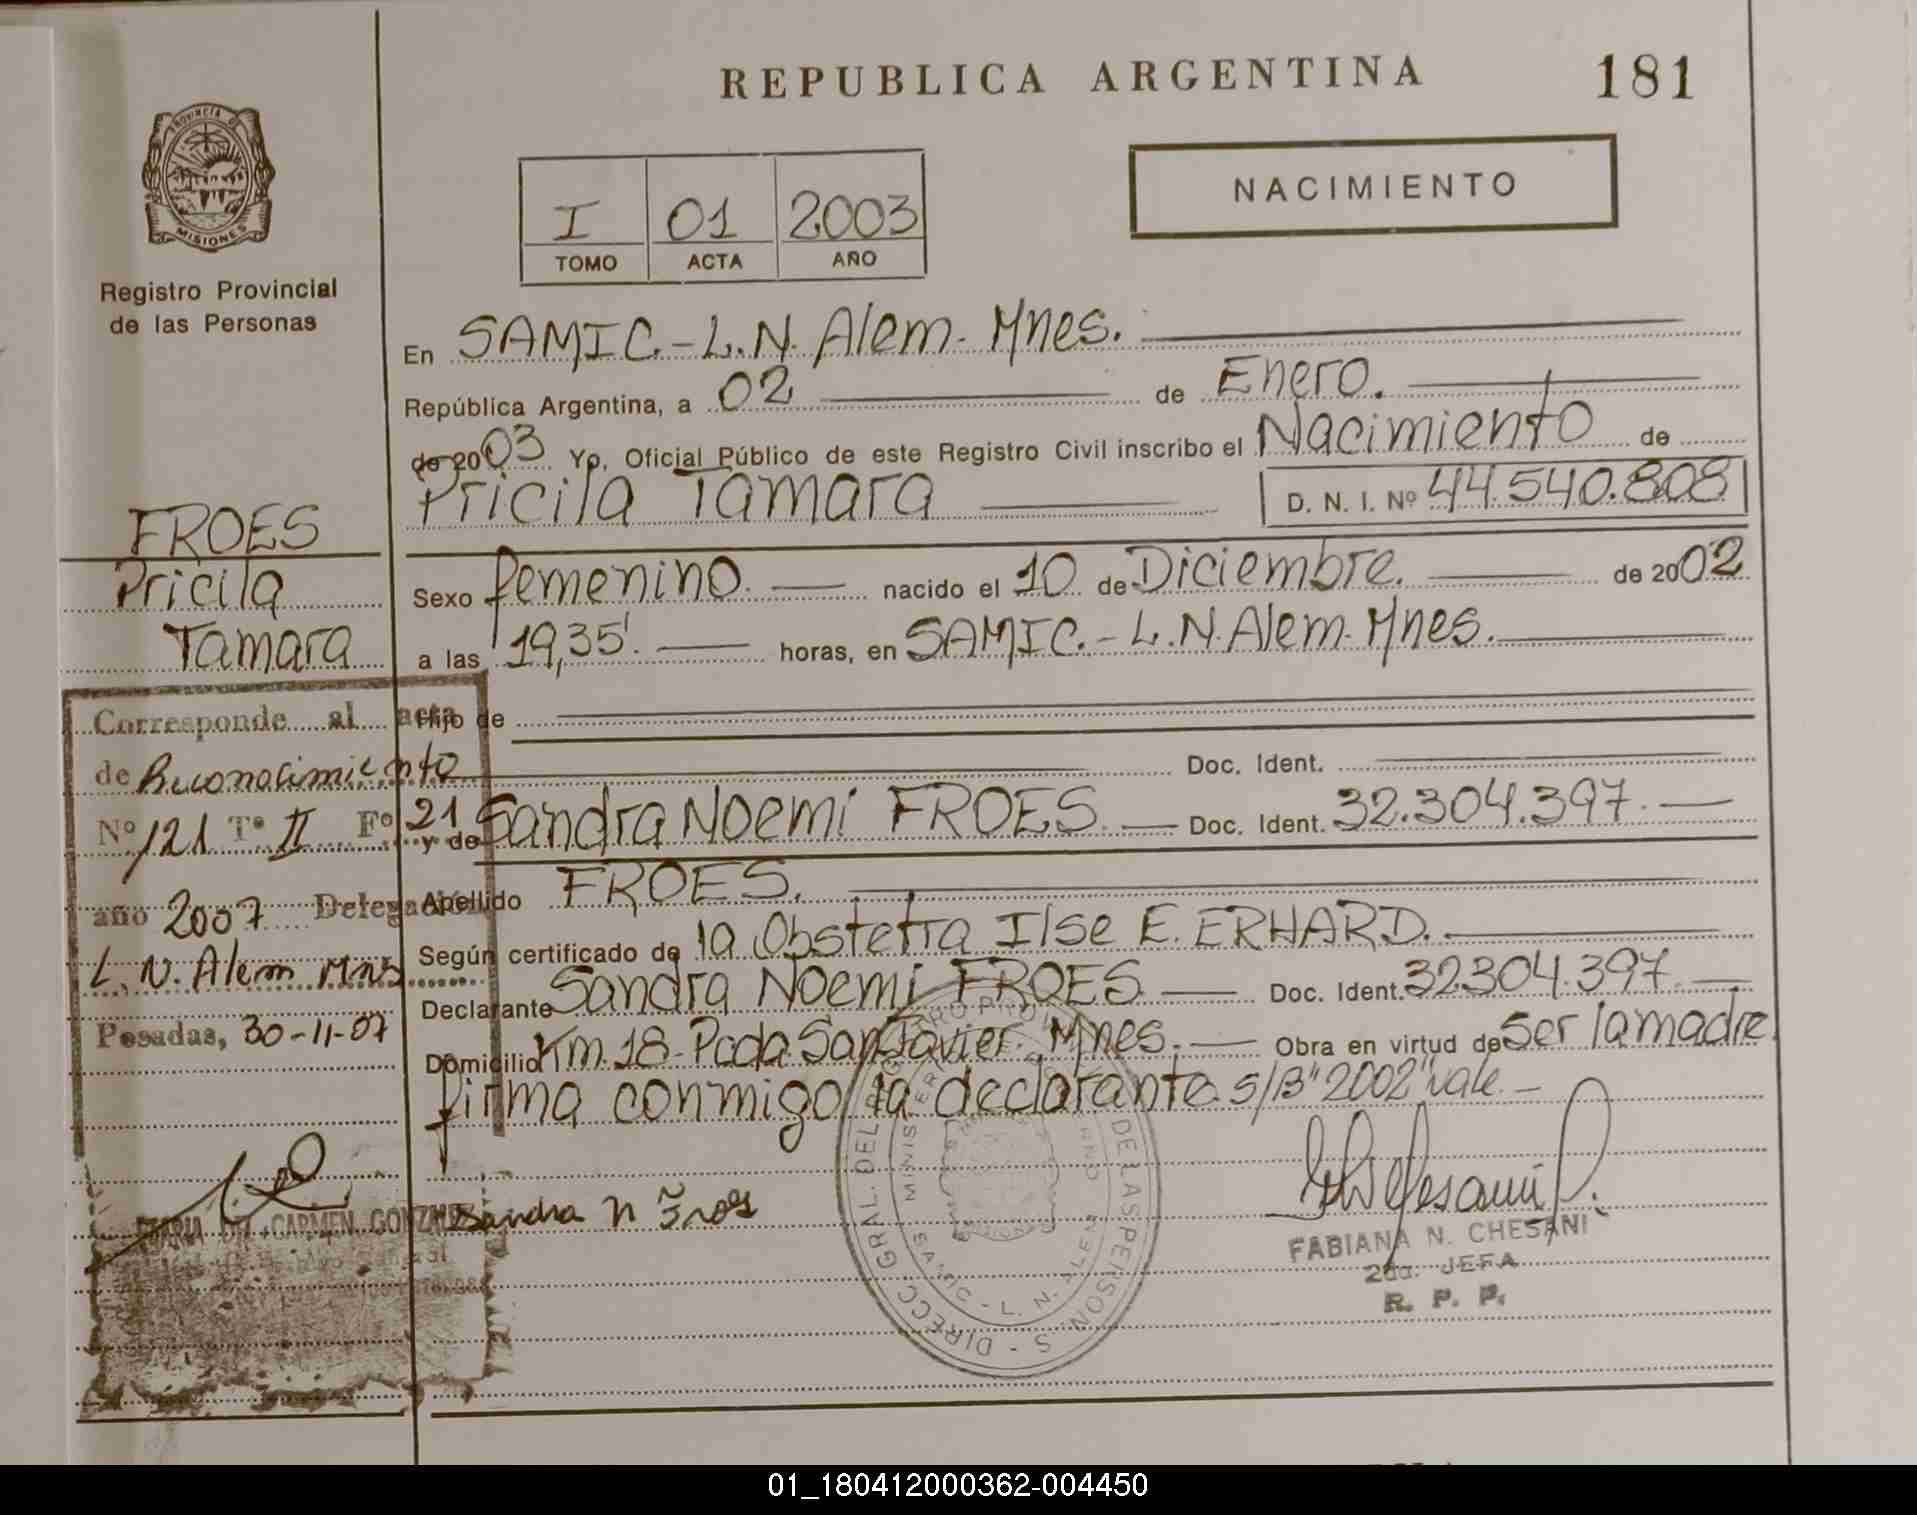 REPUBLICA ARGENTINA
181
PROVINCIA DE
MISIONES
Registro Provincial
de las Personas
I 01 2003
TOMO ACTA AÑO
NACIMIENTO
En SAMIC.-L.N. Alem- Mnes.
República Argentina, a 02 de Enero.
de 2003 Yo, Oficial Público de este Registro Civil inscribo el Nacimiento de
Pricila Tamara D. N. I. Nº 44.540.808
FROES
Pricila
Tamara
Sexo femenino. nacido el 10 de Diciembre. de 2002
a las 19,35'. horas, en SAMIC.- L.N. Alem- Mnes.
Hijo de
Doc. Ident.
y de Sandra Noemi FROES. Doc. Ident. 32.304.397.
Apellido FROES.
Según certificado de la Obstetra Ilse E. ERHARD.
Declarante Sandra Noemi FROES Doc. Ident. 32.304.397.
Domicilio Km. 18- Pcda San Javier. Mnes. Obra en virtud de Ser la madre.
firma conmigo la declarante. S/B "2002" vale.
Corresponde al acta
de Reconocimiento
Nº 121 Tº II Fº 21
año 2007 Delegación
L. N. Alem Mns
Posadas, 30-11-07
MARIA DEL CARMEN GONZALEZ
Sandra N Froes
DIRECC GRAL. DEL REGISTRO PROVINCIAL DE LAS PERSONAS
SAMIC - L. N. ALEM
FABIANA N. CHESANI
2da. JEFA
R. P. P.
01_180412000362-004450